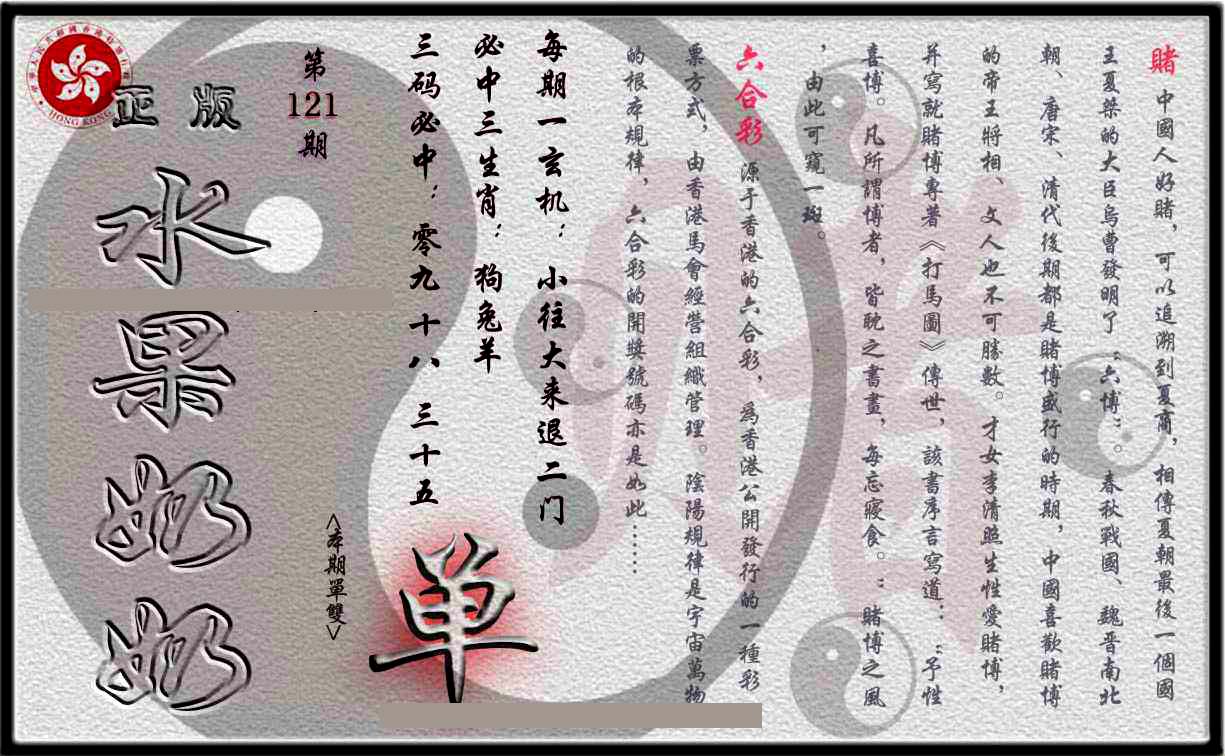 賭 中國人好賭，可以追溯到夏商，相傳夏朝最後一個國
王夏桀的大臣烏曹發明了“六博”。春秋戰國、魏晋南北
朝、唐宋、清代後期都是賭博盛行的時期，中國喜歡賭博
的帝王將相、文人也不可勝數。才女李清照生性愛賭博，
并寫就賭博專著《打馬圖》傳世，該書序言寫道：“予性
喜博。凡所謂博者，皆耽之書畫，每忘寢食。”賭博之風
，由此可窺一斑。
六合彩 源于香港的六合彩，爲香港公開發行的一種彩
票方式，由香港馬會經營組織管理。陰陽規律是宇宙萬物
的根本規律，六合彩的開獎號碼亦是如此……
每期一玄机： 小往大来退二门
必中三生肖： 狗兔羊
三码必中：零九 十八 三十五
单
<本期單雙>
第
121
期
正版
水果奶奶
HONG KONG